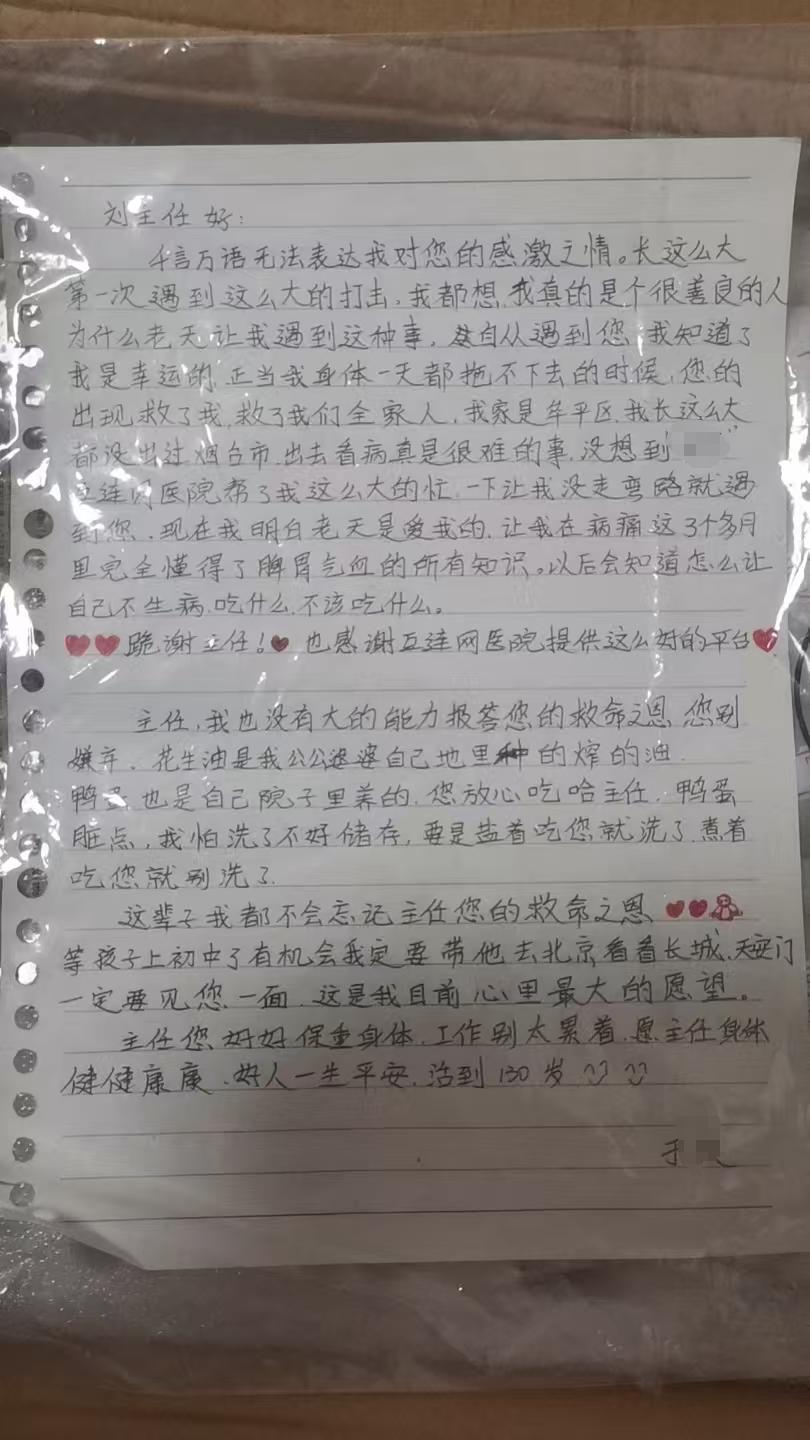 刘主任好:
千言万语无法表达我对您的感激之情。长这么大
第一次遇到这么大的打击,我都想,我真的是个很善良的人
为什么老天让我遇到这种事,自从遇到您,我知道了
我是幸运的,正当我身体一天都拖不下去的时候,您的
出现救了我,救了我们全家人,我家是牟平区,我长这么大
都没出过烟台市,出去看病真是很难的事,没想到
互连网医院帮了我这么大的忙,一下让我没走弯路就遇
到您,现在我明白老天是爱我的,让我在病痛这3个多月
里完全懂得了脾胃气血的所有知识。以后会知道怎么让
自己不生病,吃什么,不该吃什么。
❤❤跪谢主任!❤也感谢互连网医院提供这么好的平台❤
主任,我也没有大的能力报答您的救命之恩,您别
嫌弃、花生油是我公公婆婆自己地里种的榨的油.
鸭蛋也是自己院子里养的,您放心吃哈主任,鸭蛋
脏点,我怕洗了不好储存,要是盐着吃您就洗了,煮着
吃您就别洗了.
这辈子我都不会忘记主任您的救命之恩❤❤
等孩子上初中了有机会我定要带他去北京看看长城、天安门
一定要见您一面,这是我目前心里最大的愿望。
主任您好好保重身体,工作别太累着,愿主任身体
健健康康、好人一生平安,活到130岁
于